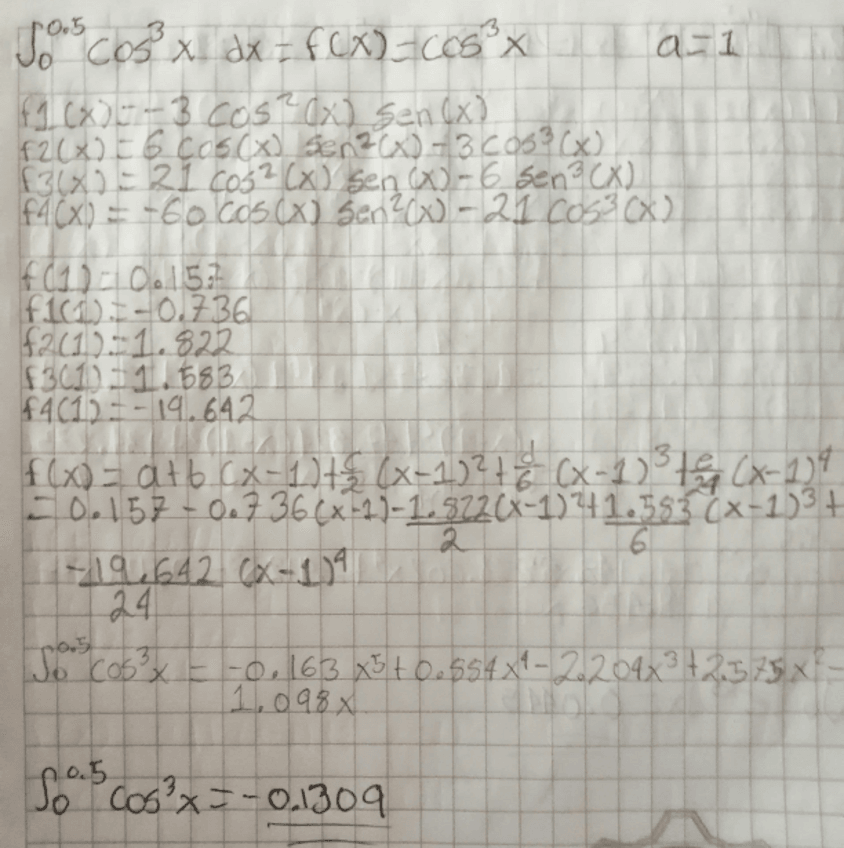 ∫₀^0.5 cos³x dx = f(x) = cos³x a=1
f1(x) = -3 cos²(x) sen(x)
f2(x) = 6 cos(x) sen²(x) - 3 cos³(x)
f3(x) = 21 cos²(x) sen(x) - 6 sen³(x)
f4(x) = -60 cos(x) sen²(x) - 21 cos³(x)
f(1) = 0.157
f1(1) = -0.736
f2(1) = 1.822
f3(1) = 1.583
f4(1) = -19.642
f(x) = a+b (x-1) + c/2 (x-1)² + d/6 (x-1)³ + e/24 (x-1)⁴
= 0.157 - 0.736(x-1) - 1.822/2 (x-1)² + 1.583/6 (x-1)³ +
-19.642/24 (x-1)⁴
∫₀^0.5 cos³x = -0.163 x⁵ + 0.884x⁴ - 2.204x³ + 2.575x² -
1.098x
∫₀^0.5 cos³x = -0.1309